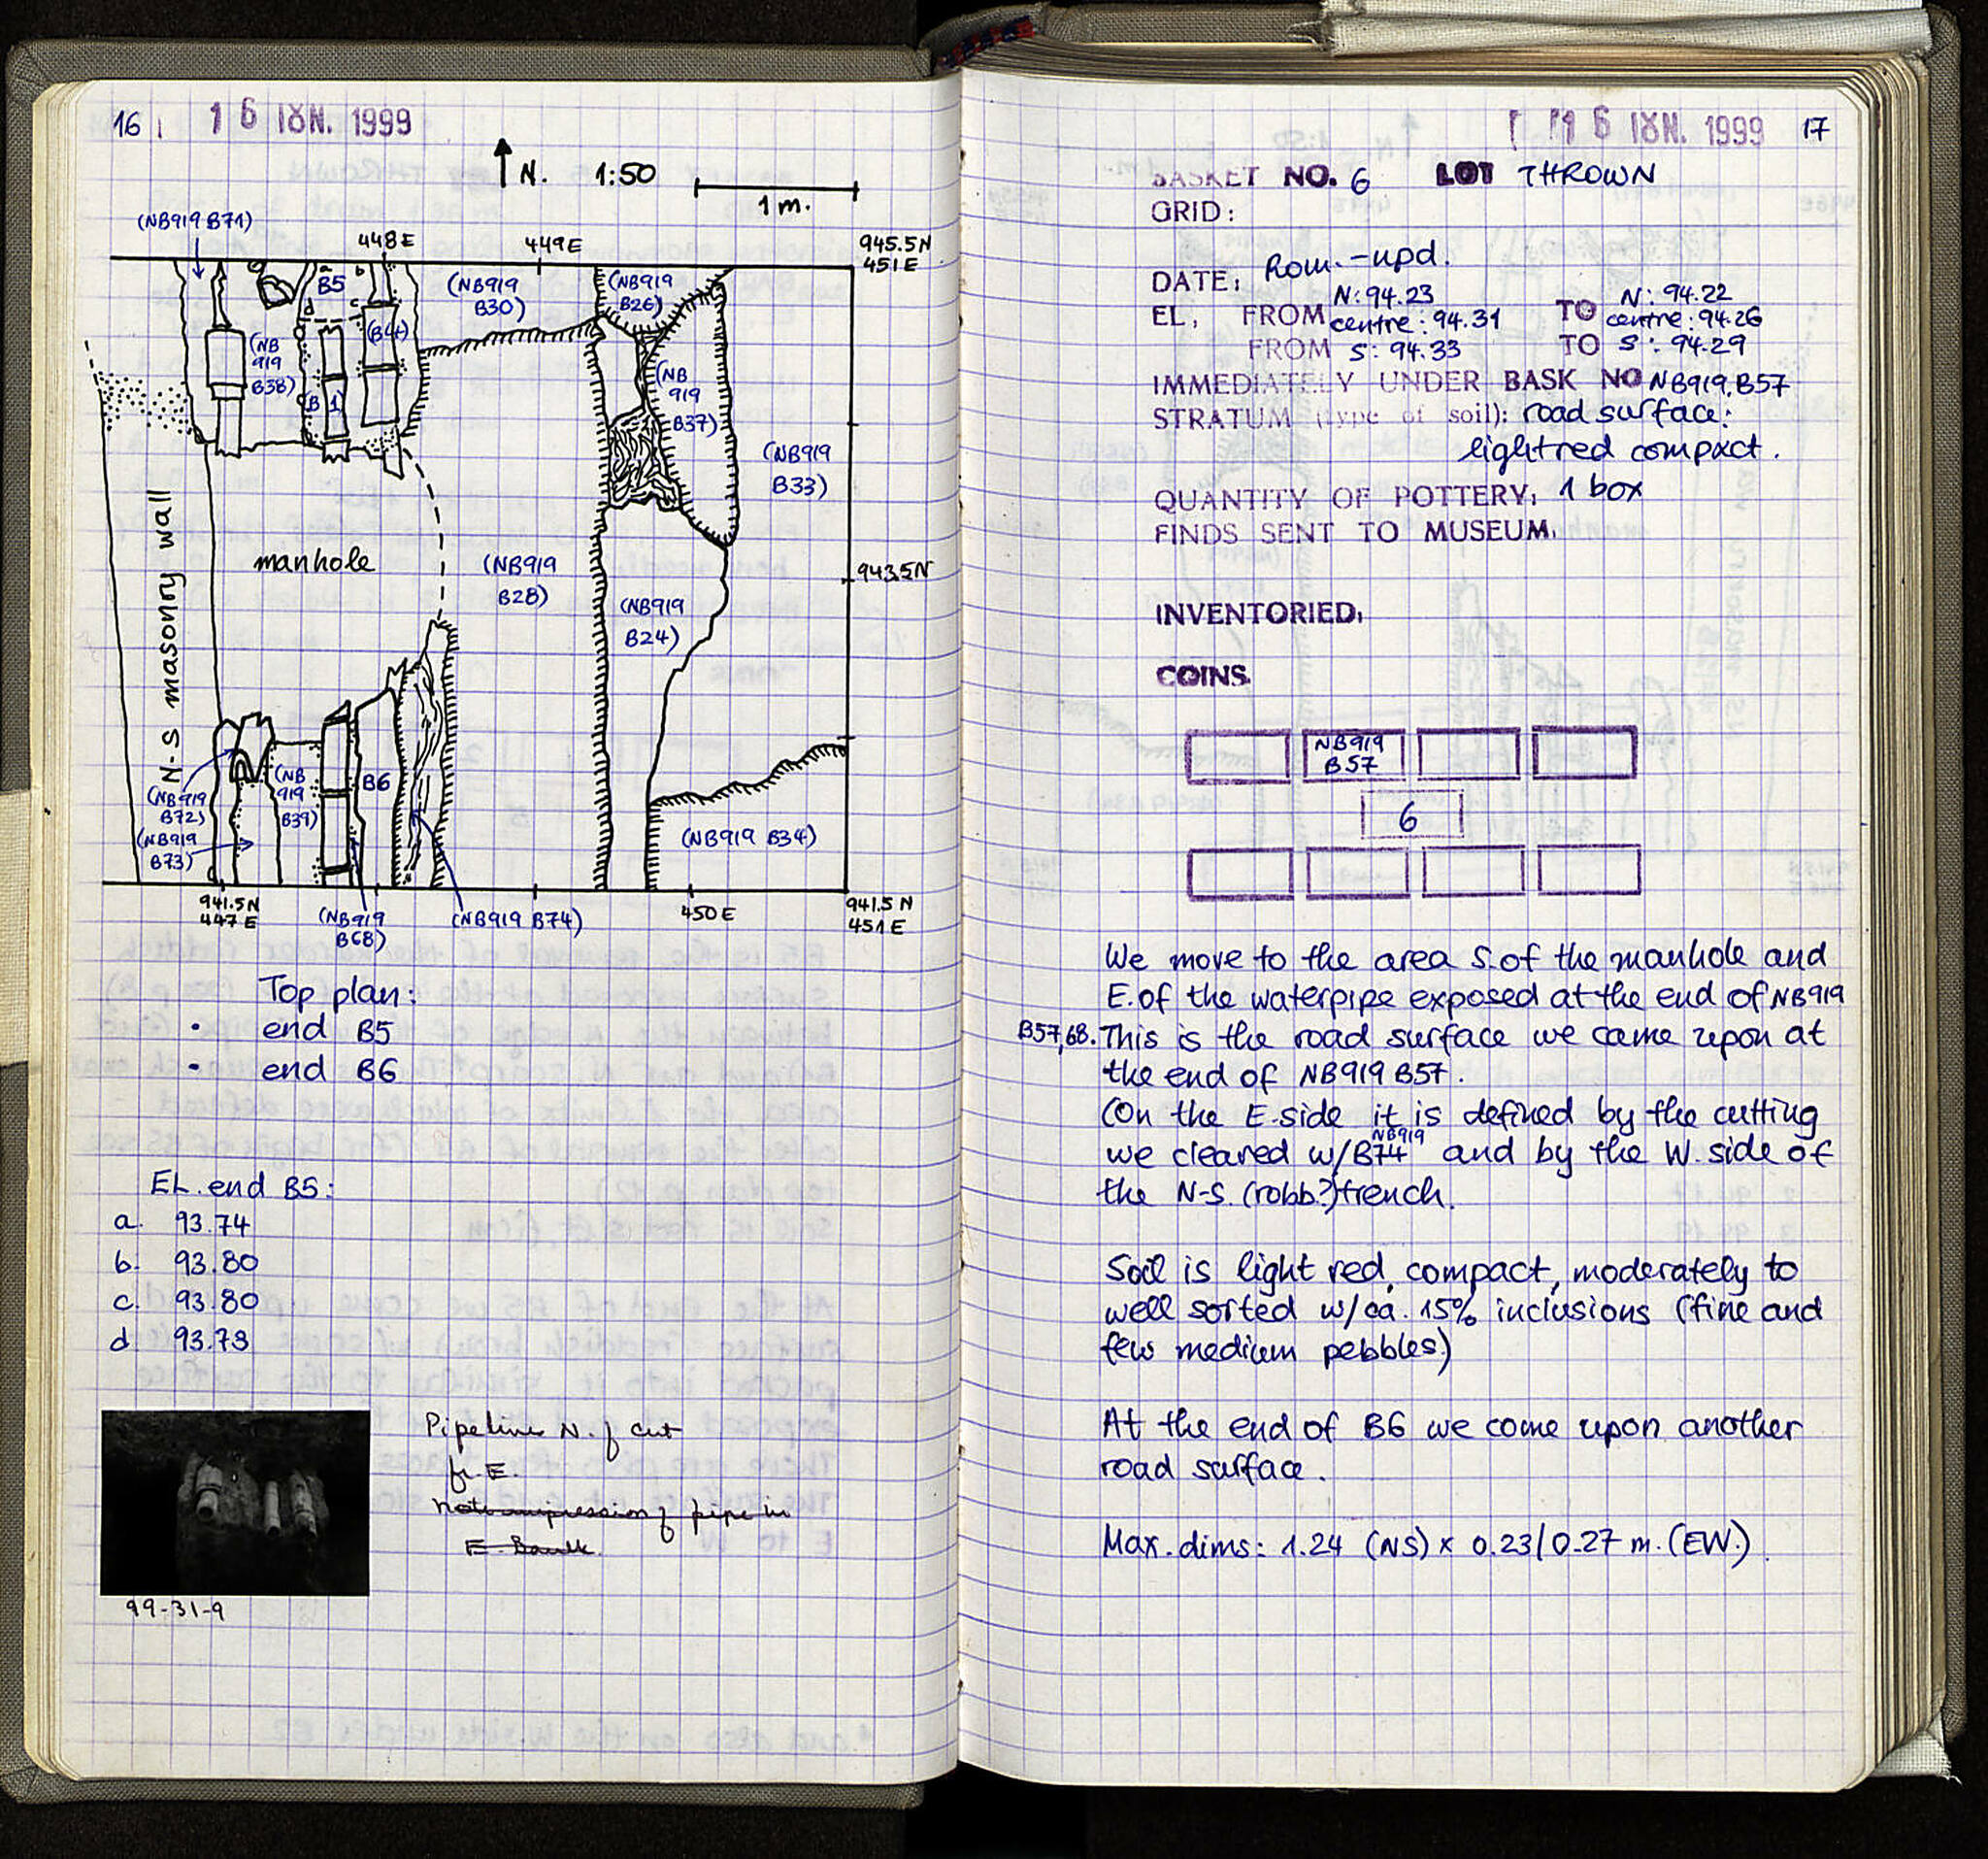 16
16 IOYN. 1999
N. 1:50
1 m.
(NB919 B71)
448 E
449 E
945.5 N
451 E
a
b
B5
d
c
(B4)
(NB919
B30)
(NB919
B26)
(NB
919
B38)
B1)
(NB
919
B37)
(NB919
B33)
N-S masonry wall
manhole
(NB919
B28)
943.5 N
(NB919
B24)
(NB919
B72)
(NB919
B73)
(NB
919
B39)
B6
(NB919 B34)
941.5 N
447 E
(NB919
B68)
(NB919 B74)
450 E
941.5 N
451 E
Top plan:
• end B5
• end B6
EL. end B5:
a. 93.74
b. 93.80
c. 93.80
d 93.73
Pipeline N. of cut
fr E.
Note impression of pipe in
E. Baulk.
99-31-9
16 IOYN. 1999
17
BASKET NO. 6 LOT THROWN
GRID:
DATE: Rom.-upd.
EL, FROM N: 94.23 TO N: 94.22
centre: 94.31 centre: 94.26
FROM S: 94.33 TO S: 94.29
IMMEDIATELY UNDER BASK NO NB919, B57
STRATUM (type of soil): road surface:
light red compact.
QUANTITY OF POTTERY, 1 box
FINDS SENT TO MUSEUM.
INVENTORIED.
COINS.
NB919
B57
6
We move to the area S. of the manhole and
E. of the waterpipe exposed at the end of NB919
B57,68. This is the road surface we came upon at
the end of NB919 B57.
(On the E. side it is defined by the cutting
we cleared w/NB919 B74 and by the W. side of
the N-S. (robb.?) trench.
Soil is light red, compact, moderately to
well sorted w/ca. 15% inclusions (fine and
few medium pebbles)
At the end of B6 we come upon another
road surface.
Max. dims: 1.24 (NS) x 0.23/0.27 m. (EW.)